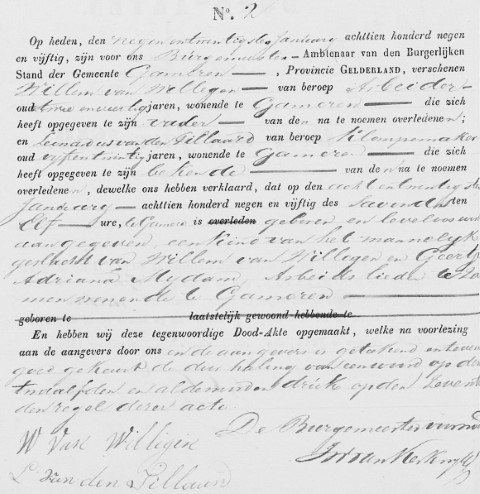 No. 2
Op heden, den negenentwintigste Januarij achttien honderd negen
en vijftig, zijn voor ons Burgemeester Ambtenaar van den Burgerlijken
Stand der Gemeente Gameren, Provincie GELDERLAND, verschenen
Willem van Willigen van beroep Arbeider
oud twee en veertig jaren, wonende te Gameren die zich
heeft opgegeven te zijn vader van den na te noemen overledenen;
en Leendert van den Tillaard van beroep Klompemaker
oud vijfentwintig jaren, wonende te Gameren die zich
heeft opgegeven te zijn bekende van den na te noemen
overledenen, dewelke ons hebben verklaard, dat op den achtentwintigste
Januarij achttien honderd negen en vijftig des savonds ten
Elf ure, te Gameren is overleden geboren en levenloos
aangegeven, een kind van het mannelijk
geslacht van Willem van Willigen en Geertje
Adriana Mydam, Arbeidslieden te
wonende te Gameren
geboren te laatstelijk gewoond hebbende te
En hebben wij deze tegenwoordige Dood-Akte opgemaakt, welke na voorlezing
aan de aangevers door ons en de aangevers is getekend en tevens
goed gekeurd de doorhaling van een woord op den
twaalfden en druk op den zeventien
den regel dezer acte.
De Burgemeester voornd
W Van Willigen
L. van den Tillaard